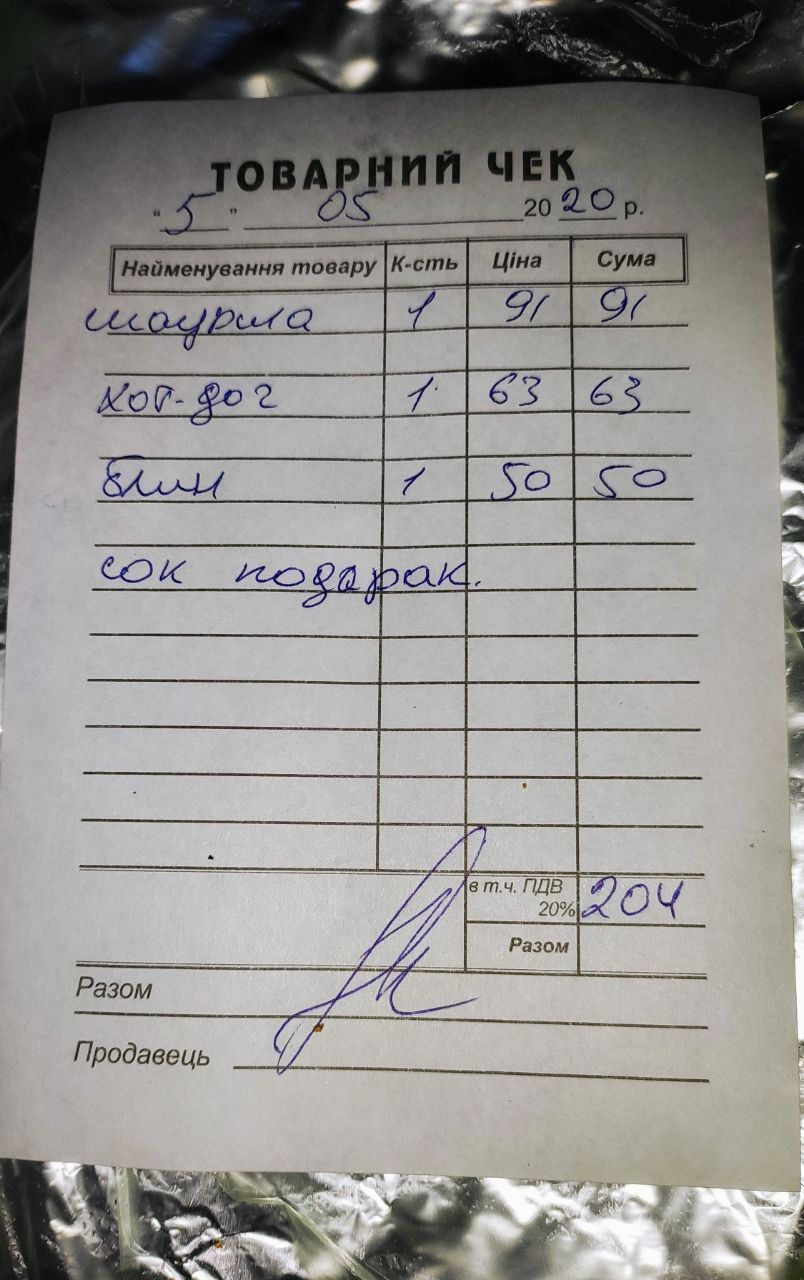 ТОВАРНИЙ ЧЕК
"5" 05 2020 р.
Найменування товару К-сть Ціна Сума
шаурма 1 91 91
хот-дог 1 63 63
блин 1 50 50
сок подарак.
в т.ч. ПДВ 20% 204
Разом
Разом
Продавець